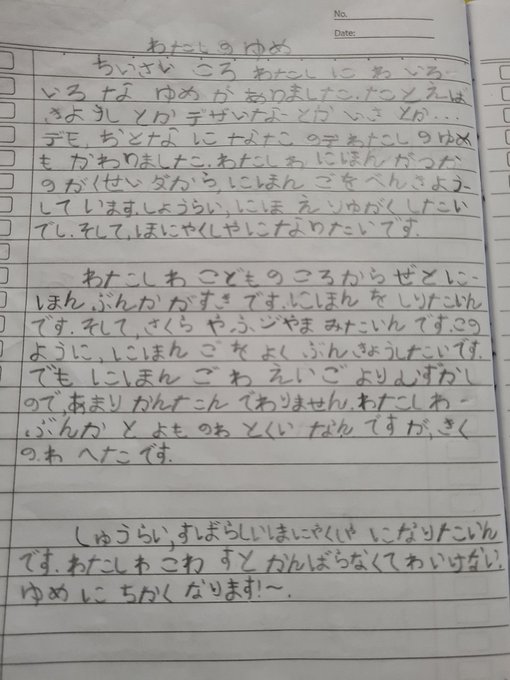 No.
Date:
わたしの ゆめ
ちいさい ころ わたし に わ いろ-
いろ な ゆめ が ありました. たとえば
きょうし とか デザいなーとか いさ とか...
デモ, おとな に なたこ のデ わたし の ゆめ
も かわりました. わたし わ にほん がつか
の がくせい ダから, にほん ごを べんきよう-
して います. しょうらい, にほ え りゆがく したい
でし. そして, ほにやくしや に なりたいです.
わたし わ こども の ころ から ぜとに-
ほん ぶんか が すき です. にほん を しりたいん
です. そして, さくら や, ふじやま みたいん です. この
ように, にほん ご を よく ぶんきょうしたいです.
でも にほん ご わ えいご より むずかし
ので, あまり かんたこん でわりません. わたし わ-
ぶんか と よも のわ とくい なん ですが, きく
の. わ へた です.
しゅうらい, すばらしいほにやくしや になりたいん
です. わたし わ これ すと がんばらなくて わ いけない.
ゆめ に ちかく なります!~.